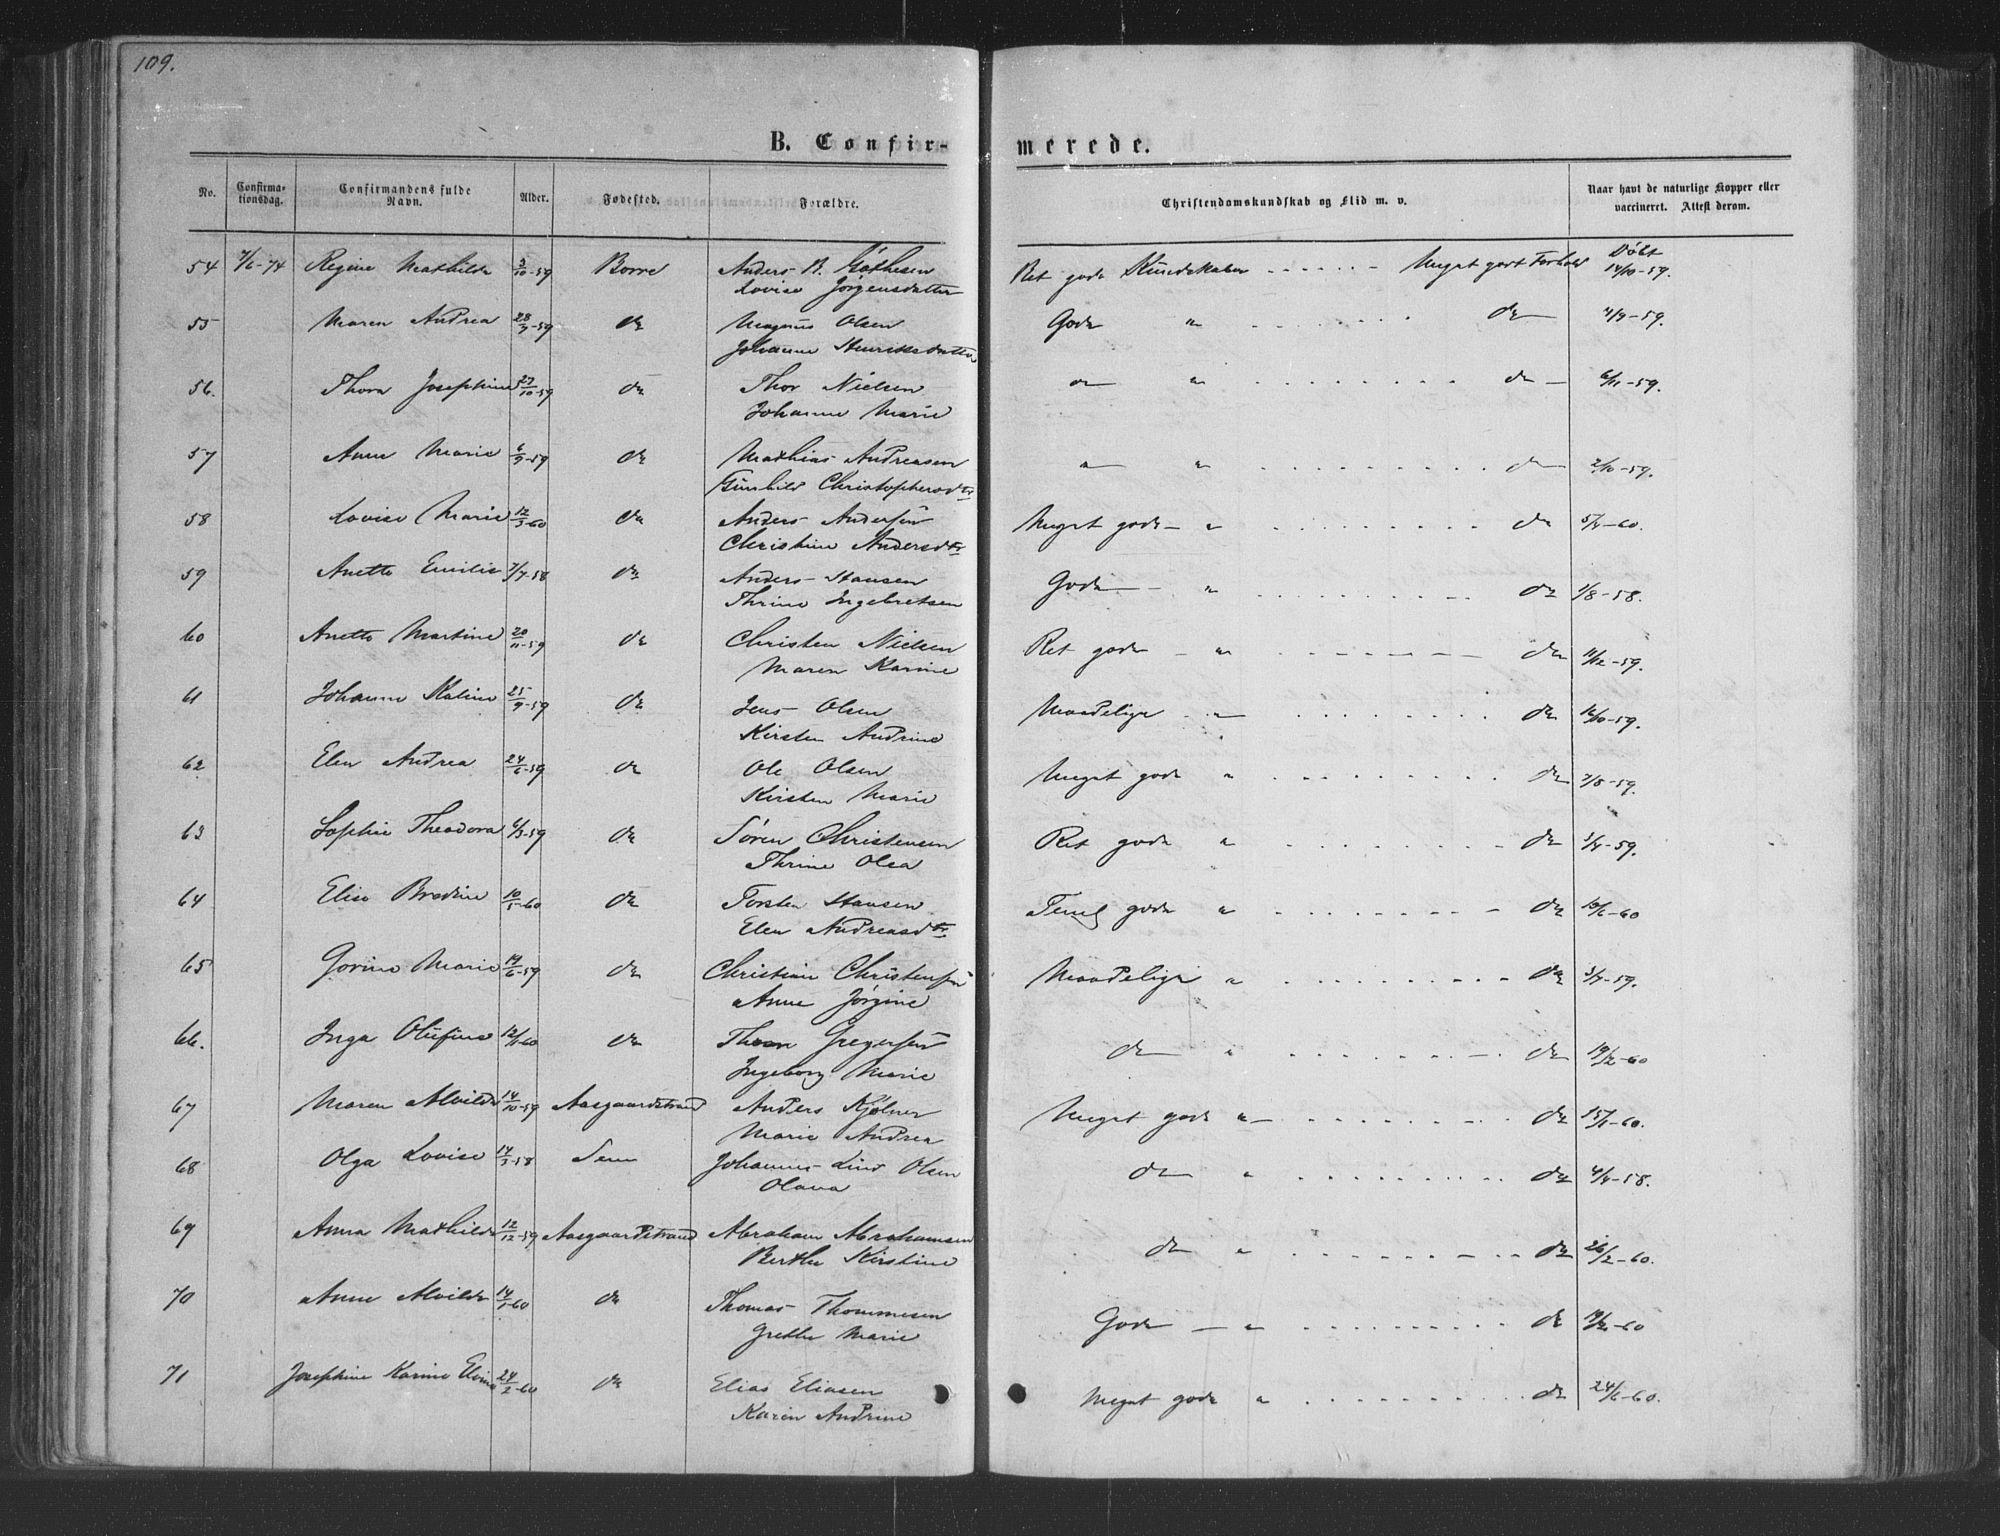 109.
B. Confir-merede.
No. Confirma-tionsdag. Confirmandens fulde Navn. Alder. Fødested. Forældre. Christendomskundskab og Flid m. v. Naar havt de naturlige Kopper eller vaccineret. Attest derom.
Døbt
54 7/6-74 Regine Mathilde 3/10-59 Borre Anders B. Gøthesen Ret gode Kundskaber - - - - - - Meget godt Forhold 14/10-59.
Lovise Jørgensdatter
55 Maren Andrea 28/7-59 do Magnus Olsen Gode " do -59.
Johanne Henriksdatter
56. Thora Josephine 27/10-59 do Thor Nielsen do " do 6/11-59.
Johanne Marie
57 Anne Marie 6/9-59 do Mathias Andreasen " " do 2/10-59.
Gunhild Christophersdtr
58 Lovise Marie 12/3-60 do Anders Andersen Meget gode " do 5/4-60.
Christine Andersdtr
59 Anette Emilie 7/7-58 do Anders Hansen Gode " do 1/8-58.
Thrine Ingebretsen
60 Anette Martine 20/11-59 do Christen Nielsen Ret gode " do 11/12-59.
Maren Karine
61 Johanne Maline 25/9-59 do Jens Olsen Maadelige " do 16/10-59.
Kirsten Andrine
62 Elen Andrea 24/6-59 do Ole Olsen Meget gode " do 7/8-59.
Kirsten Marie
63 Sophie Theodora 6/3-59 do Søren Christensen Ret gode " do 3/4-59.
Thrine Olea
64 Elise Bredine 10/5-60 do Torsten Hansen Teml gode " do 10/6-60
Elen Andreasdtr
65 Gorine Marie 14/6-59 do Christian Christensen Maadelige " do 3/7-59.
Anne Jørgine
66. Inga Olufine 12/1-60 do Thor Gregersen do " do 19/2-60
Ingeborg Marie
67 Maren Alvilde 14/10-59 Aasgaardstrand Anders Kjølner Meget gode " do 15/1-60.
Marie Andrea
68 Olga Lovise 14/3-58 Sem Johannes Lind Olsen do " do 4/4-58.
Olava
69 Anna Mathilde 12/12-59 Aasgaardstrand Abraham Abrahamsen do " do 26/2-60.
Berthe Kirstine
70 Anne Alvilde 14/1-60 do Thomas Thommesen Gode " do 19/2-60
Grethe Marie
71 Josephine Karine Elvine 24/2-60 do Elias Eliasen Meget gode " do 24/6-60.
Karen Andrine